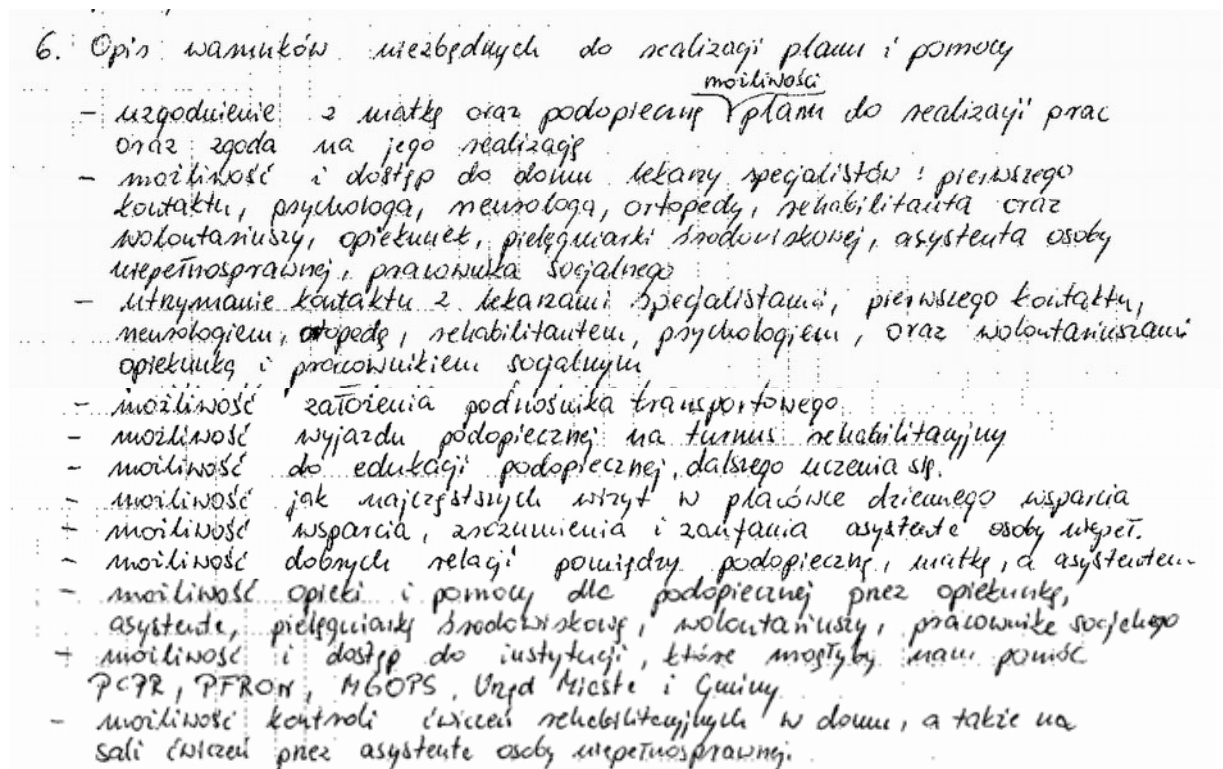 6. Opis warunków niezbędnych do realizacji planu i pomocy
możliwości
- uzgodnienie z matką oraz podopieczną planu do realizacji prac
oraz zgoda na jego realizację
- możliwość i dostęp do domu lekarzy specjalistów: pierwszego
kontaktu, psychologa, neurologa, ortopedy, rehabilitanta oraz
wolontariuszy, opiekunek, pielęgniarki środowiskowej, asystenta osoby
niepełnosprawnej, pracownika socjalnego
- utrzymanie kontaktu z lekarzami specjalistami, pierwszego kontaktu,
neurologiem, ortopedą, rehabilitantem, psychologiem, oraz wolontariuszami
opiekunką i pracownikiem socjalnym
- możliwość założenia podnośnika transportowego
- możliwość wyjazdu podopiecznej na turnus rehabilitacyjny
- możliwość do edukacji podopiecznej, dalszego uczenia się.
- możliwość jak najczęstszych wizyt w placówce dziennego wsparcia
- możliwość wsparcia, zrozumienia i zaufania asystenta osoby niepeł.
- możliwość dobrych relacji pomiędzy podopieczną, matką, a asystentem
- możliwość opieki i pomocy dla podopiecznej przez opiekunkę,
asystenta, pielęgniarkę środowiskową, wolontariuszy, pracownika socjalnego
- możliwość i dostęp do instytucji, które mogłyby nam pomóc
PCPR, PFRON, MGOPS, Urząd Miasta i Gminy
- możliwość kontroli ćwiczeń rehabilitacyjnych w domu, a także na
sali ćwiczeń przez asystenta osoby niepełnosprawnej.